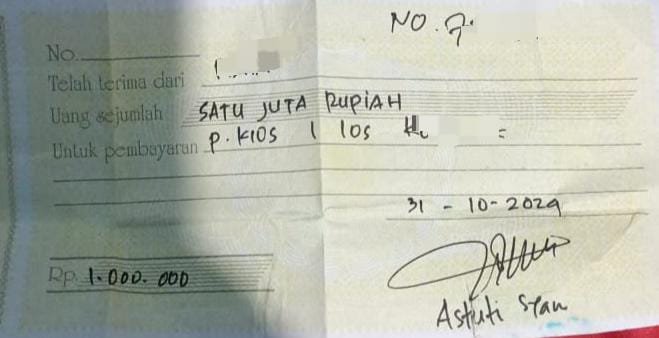 NO. 7.
No.
Telah terima dari
Uang sejumlah SATU JUTA RUPIAH
Untuk pembayaran P. KIOS 1 los
31 - 10 - 2024
Rp. 1.000.000
Astuti